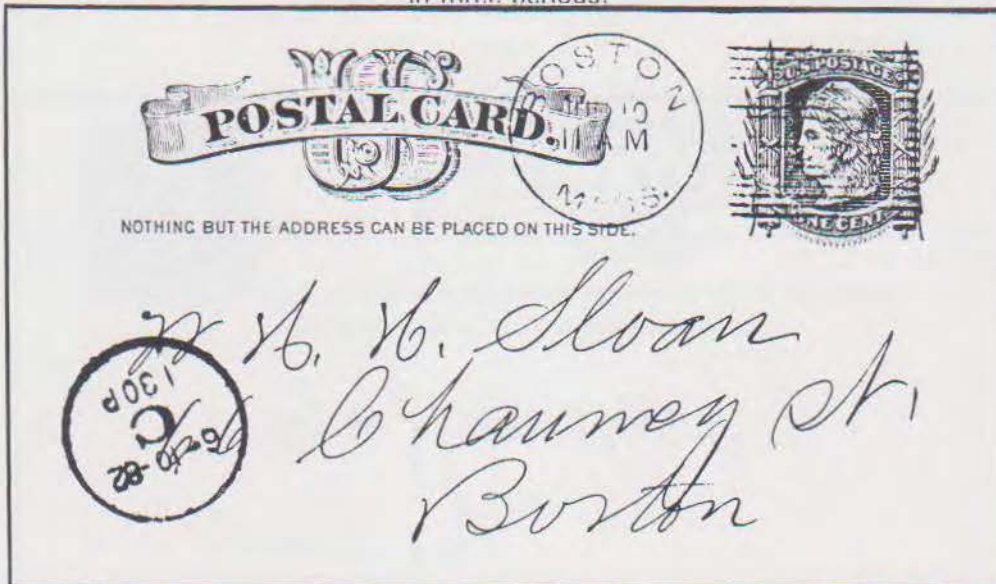 POSTAL CARD.
BOSTON
10
11 AM
MASS.
U.S. POSTAGE
ONE CENT
NOTHING BUT THE ADDRESS CAN BE PLACED ON THIS SIDE.
H. H. Sloan
Chauncy St.
Boston
130P
C
6-10-82